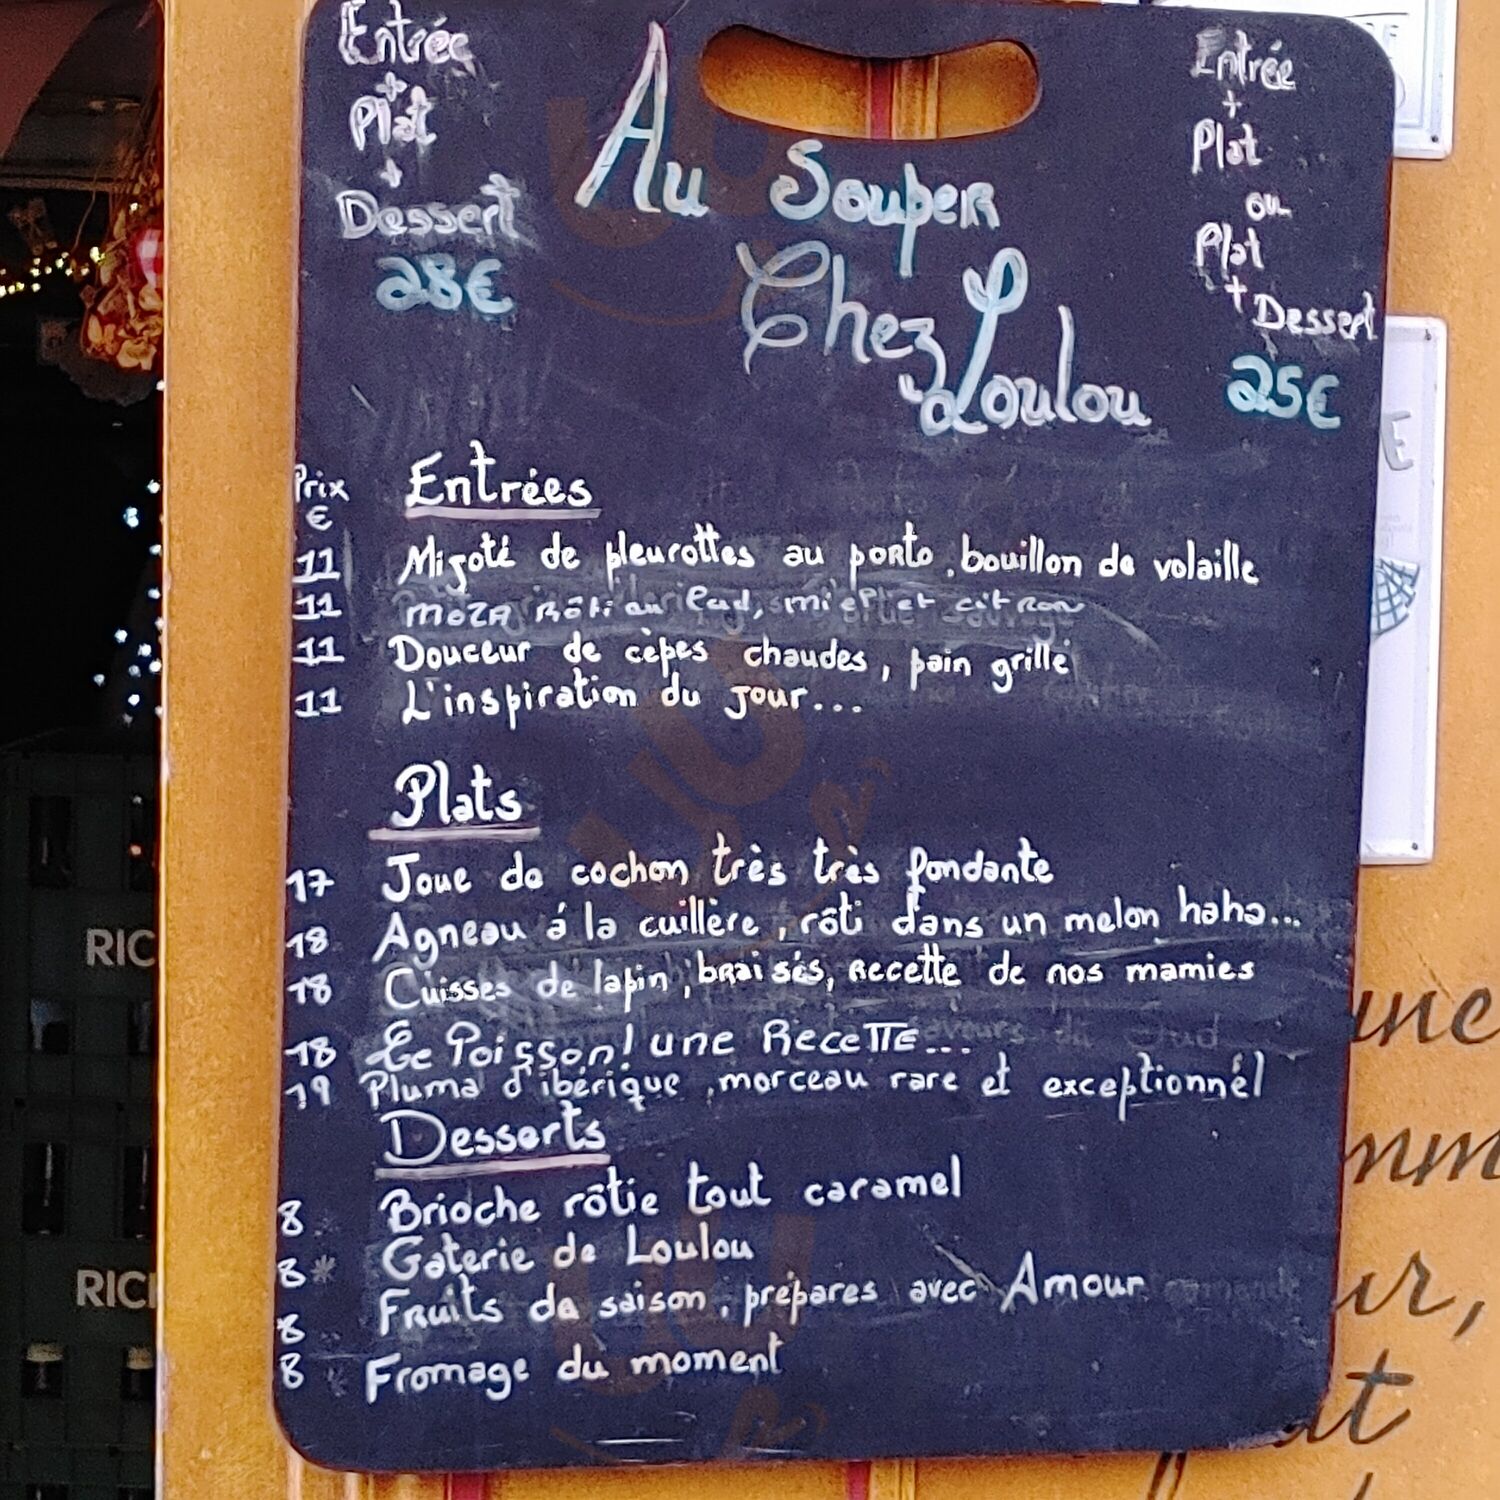 Entrée
+
Plat
+
Dessert
28€
Au Souper
Chez Loulou
Entrée
+
Plat
ou
Plat
+ Dessert
25€
Prix
€
Entrées
11 Mijoté de pleurottes au porto, bouillon de volaille
11 Moza Rôti au lard, miel et citron
11 Douceur de cèpes chaudes, pain grillé
11 L'inspiration du jour...
Plats
17 Joue de cochon très très fondante
18 Agneau á la cuillère, rôti dans un melon haha...
18 Cuisses de lapin, braisés, Recette de nos mamies
18 Le Poisson! une Recette...
19 Pluma d'ibérique, morceau rare et exceptionnél
Desserts
8 Brioche rôtie tout caramel
8* Gaterie de Loulou
8 Fruits de saison, prépares avec Amour
8 Fromage du moment
RIC
RIC
E
une
mm
ur,